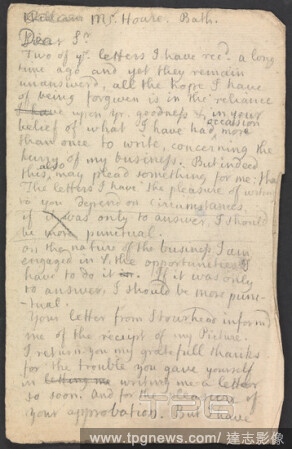 Ms. House. Bath.
Dear Sr.
Two of yr. letters I have recd. a long
time ago and yet they remain
unanswerd, all the hope I have
of being forgiven is in the reliance
I have upon yr. goodness & in your
belief of what I have had occasion more
than once to write, concerning the
hurry of my business. But indeed
this also may plead something for me: that
The letters I have the pleasure of writing
to you depend on Circumstances.
if was only to answer, I should
be more punctual.
on the nature of the business I am
engaged in & the opportunities I
have to do it in. If it was only
to answer, I should be more punc-
tual.
Your letter from Stourhead informd
me of the receipt of my Picture.
I return you my gratefull thanks
for the trouble you gave yourself
in letting me writing me a letter
so soon. And for the pleasure of
your approbation. But
TPG
www.tpgnews.com/ 達志影像